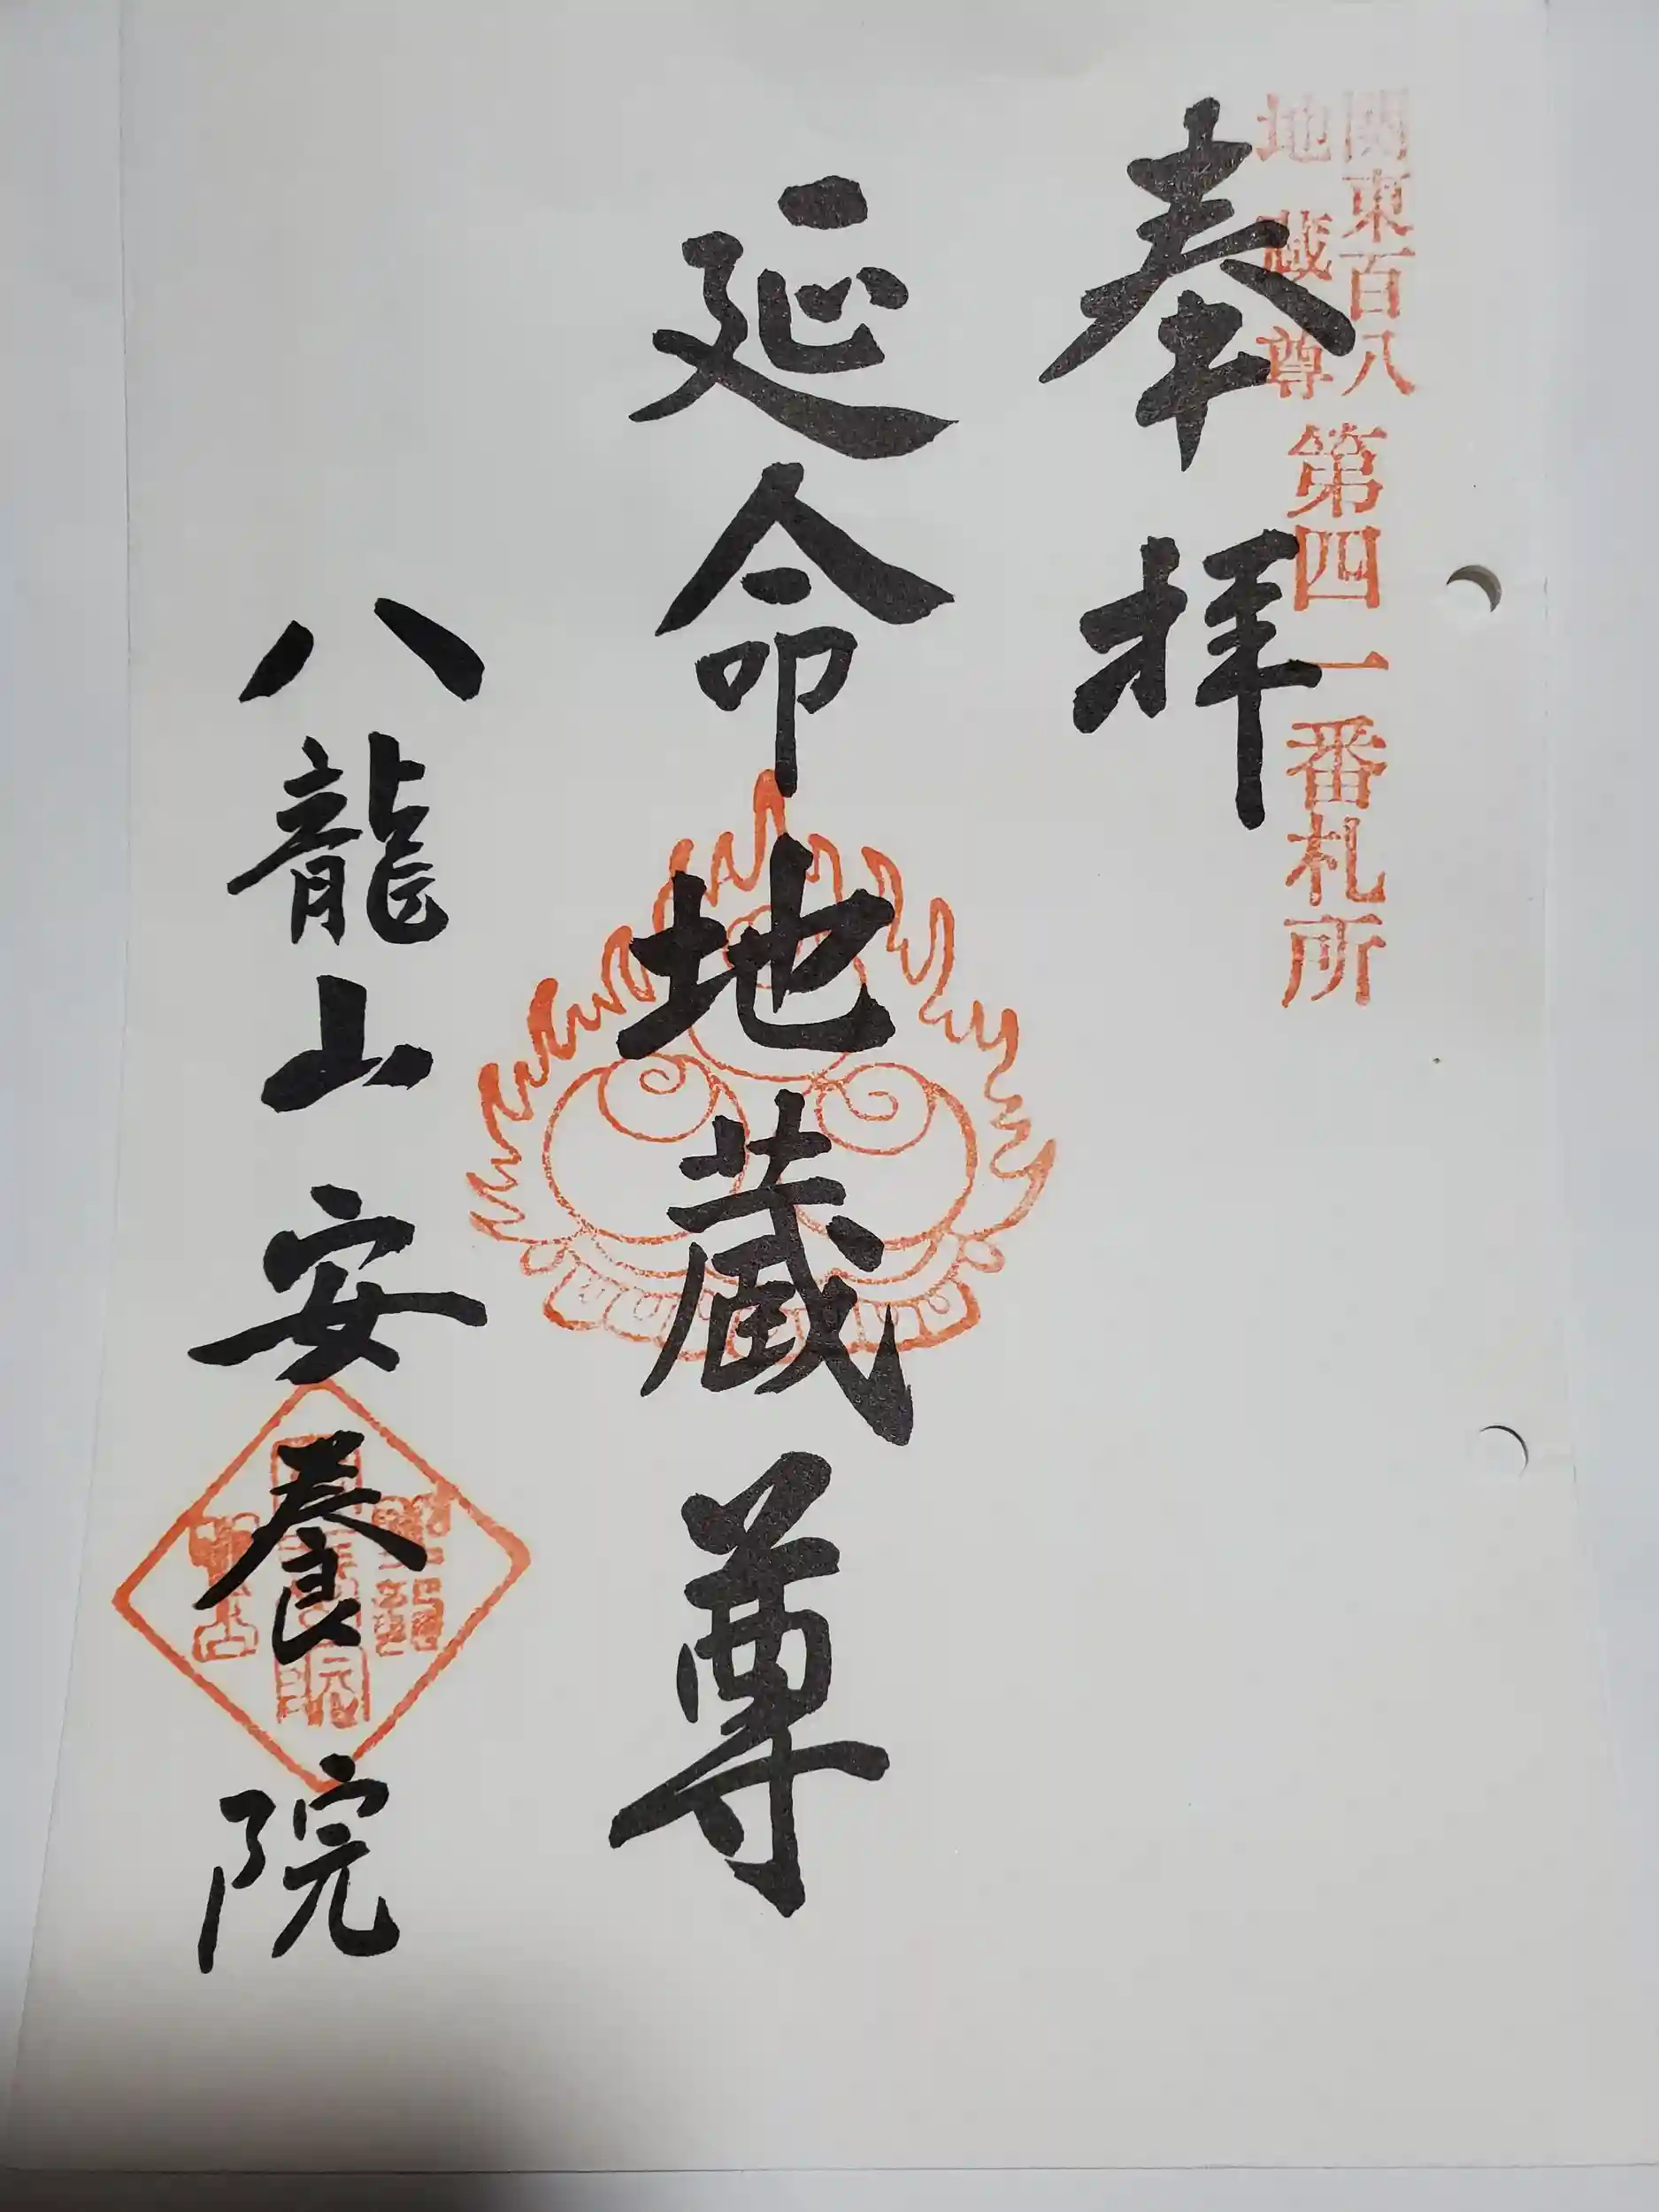 関東百八
地蔵尊
第四一番札所
奉拝
延命地蔵尊
八龍山安養院